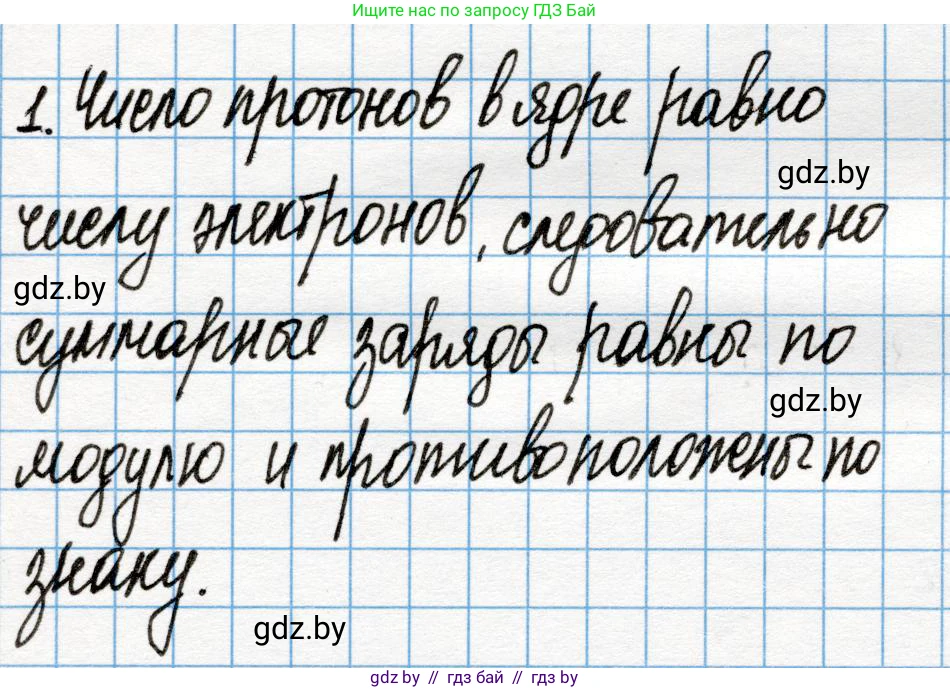 Ищите нас по запросу ГДЗ Бай
1. Число протонов в ядре равно
gdz.by
числу электронов, следовательно
gdz.by
суммарные заряды равны по
gdz.by
модулю и противоположены по
знаку.
gdz.by
gdz.by // гдз бай // gdz.by